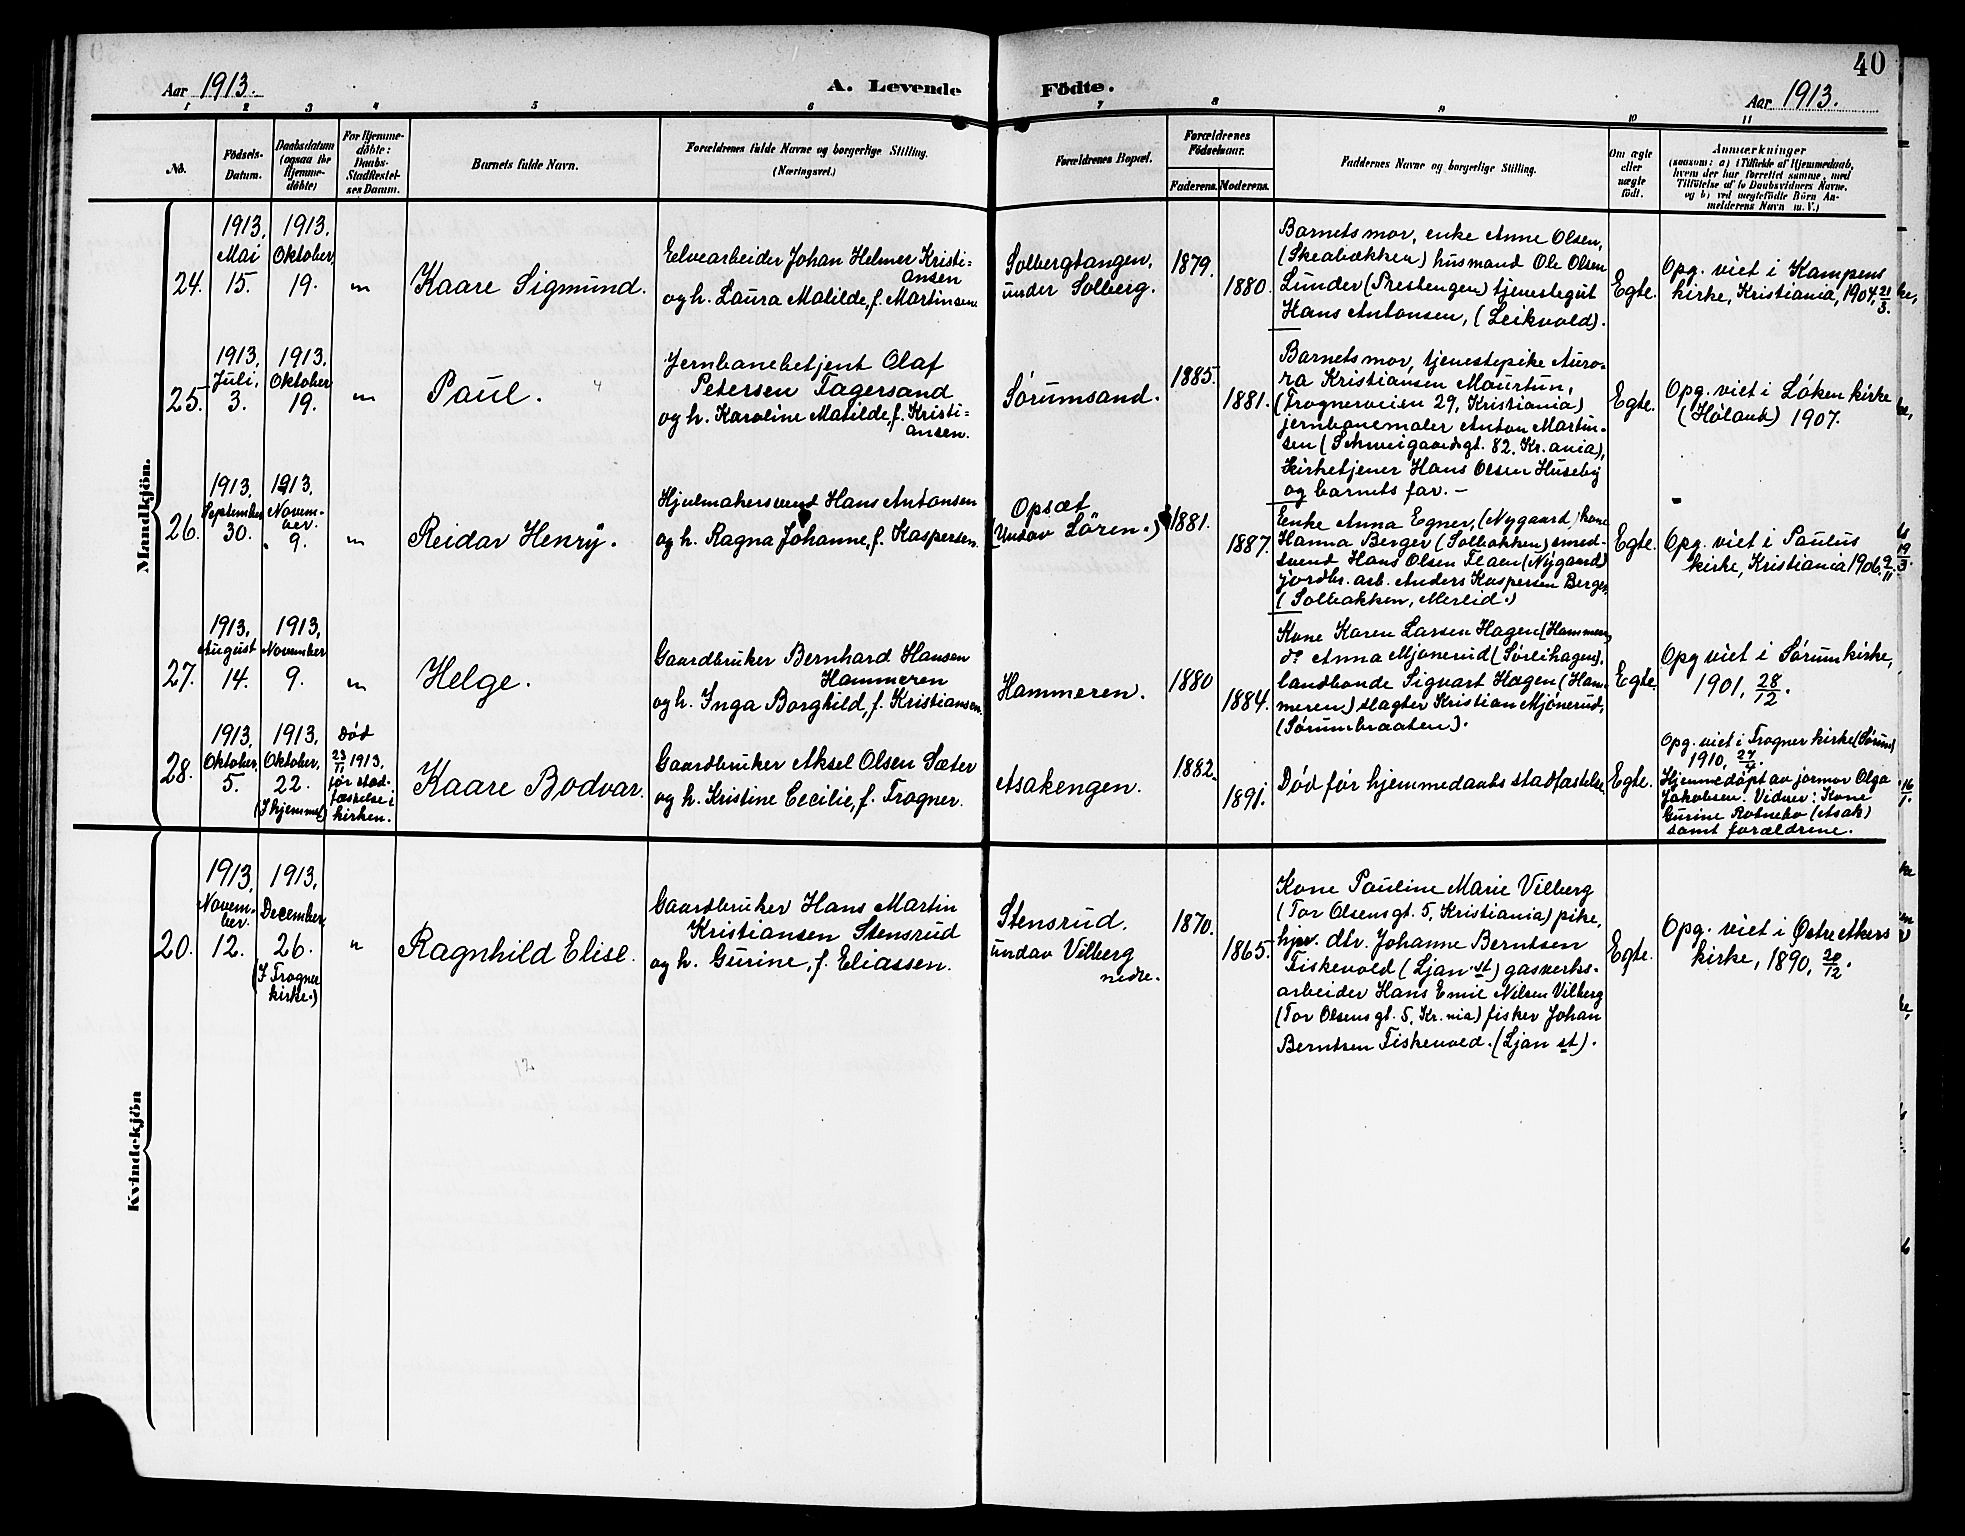 40
Aar 1913.
A. Levende
Födte.
Aar 1913.
1 2 3 4 5 6 7 8 9 10 11
No.
Födsels-
Datum.
Daabsdatum
(ogsaa for
Hjemme-
döbte)
For Hjemme-
döbte:
Daabs-
Stadfestel-
ses Datum.
Barnets fulde Navn.
Forældrenes fulde Navne og borgerlige Stilling.
(Næringsvei.)
Forældrenes Bopæl.
Forældrenes
Födselsaar.
Faderens. Moderens.
Faddernes Navne og borgerlige Stilling.
Om ægte
eller
uægte
födt.
Anmærkninger
(saasom: a) i Tilfælde af Hjemmedaab,
hvem der har forrettet samme, med
Tilføielse af to Daabsvidners Navne,
og b) ved uegtefödte Börn An-
melderens Navn m. V.)
Mandkjön.
24.
1913.
Mai
15.
1913.
Oktober,
19.
"
Kaare Sigmund.
Elvearbeider Johan Helmer Kristi=
ansen
og h. Laura Matilde, f. Martinsen
Solbergtangen,
under Solberg.
1879.
1880.
Barnets mor, enke Anne Olsen,
(Skeabakken) husmand Ole Olsen
Lunder (Prestengen) tjenestegut
Hans Antonsen, (Leikvold).
Egte.
Opg. viet i Kampens
kirke, Kristiania, 1904, 20/3.
25.
1913.
Juli,
3.
1913.
Oktober
19.
"
Paul.
Jernbanebetjent Olaf
Petersen Fagersand
og h. Karoline Matilde, f. Kristi=
ansen.
Sørumsand.
1885.
1881.
Barnets mor, tjenestepike Auro-
ra Kristiansen Maurtun,
(Frognerveien 29, Kristiania)
jernbanemaler Anton Martin-
sen (Schweigaardsgt. 82, Kr.ania),
kirketjener Hans Olsen Huseby
og barnets far. –
Egte.
Opg. viet i Løken kirke
(Høland) 1907.
26.
1913.
September
30.
1913.
Novem-
ber.
9.
"
Reidar Henry.
Hjulmakersvend Hans Antonsen
og h. Ragna Johanne, f. Kaspersen.
Opsæt
(Undav Lören.)
1881.
1887.
Enke Anna Egner, (Nygaard) kone
Hanna Berger (Solbakken) smed-
svend Hans Olsen Flaen (Nygaard)
jordbr. arb. Anders Kaspersen Berger,
(Solbakken, Merlid.)
Egte.
Opg. viet i Paulus
kirke, Kristiania 1906, 2/11
27.
1913.
August
14.
1913.
November
9.
"
Helge.
Gaardbruker Bernhard Hansen
Hammeren
og h. Inga Borghild, f. Kristiansen.
Hammeren.
1880
1884.
Kone Karen Larsen Hagen (Hammeren)
do Anna Mjønerud (Sørlihagen),
landbonde Sigvart Hagen (Ham-
meren) slagter Kristian Mjønerud,
(Sørumbraaten).
Egte.
Opg viet i Sørum kirke,
1901, 28/12.
28.
1913.
Oktober,
5.
1913.
Oktober,
22.
(I hjemmet)
Død
23/11 1913.
før stad-
fæstelse i
kirken.
Kaare Bodvar.
Gaardbruker Aksel Olsen Sæter
og h. Kristine Cecilie, f. Frogner.
Asakengen.
1882.
1891.
Død før hjemmedaabs stadfæstelse.
Egte.
Opg. viet i Frogner kirke (Sørum)
1910, 24/4.
Hjemmedøpt av jormor Olga
Jakobsen. Vidner: Kone
Gurine Rotnebo (Asak)
samt forældrene.
Kvindekjön
20.
1913.
Novem-
ber.
12.
1913.
December,
26.
(I Frogner
kirke.)
"
Ragnhild Elise.
Gaardbruker Hans Martin
Kristiansen Stensrud
og h. Gurine, f. Eliassen.
Stensrud.
undav Vilberg
nedre.
1870.
1865.
Kone Pauline Marie Vilberg
(Tor Olsens gt. 5, Kristiania) pike,
hjv. dtr. Johanne Berntsen
Fiskevold (Ljan st) gasverks-
arbeider Hans Emil Nilsen Vilberg
(Tor Olsens gt. 5, Kr.nia) fisker Johan
Berntsen Fiskevold. (Ljan st).
Egte.
Opg. viet i Østre Akers
kirke, 1890, 28/12.
12